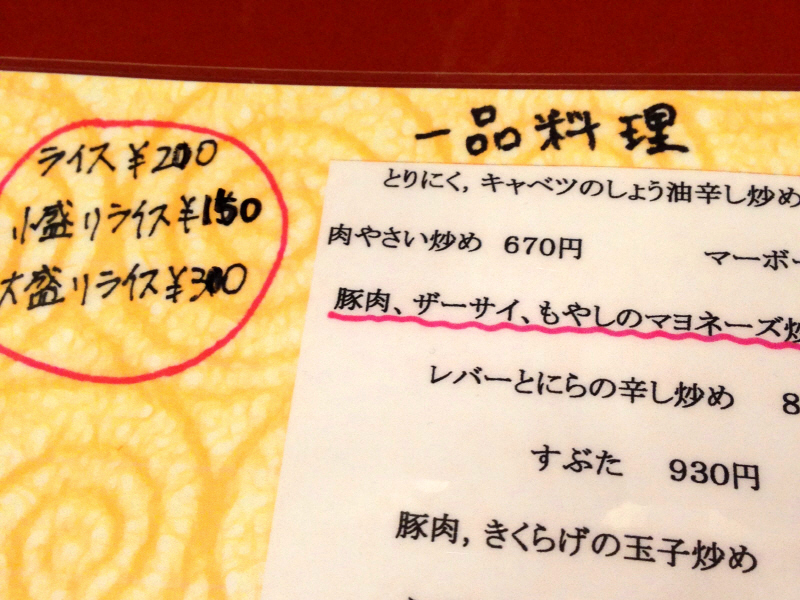 一品料理
ライス ¥200
小盛りライス ¥150
大盛りライス ¥300
とりにく, キャベツのしょう油辛し炒め
肉やさい炒め 670円 マーボー
豚肉、ザーサイ、もやしのマヨネーズ炒
レバーとにらの辛し炒め 8
すぶた 930円
豚肉, きくらげの玉子炒め